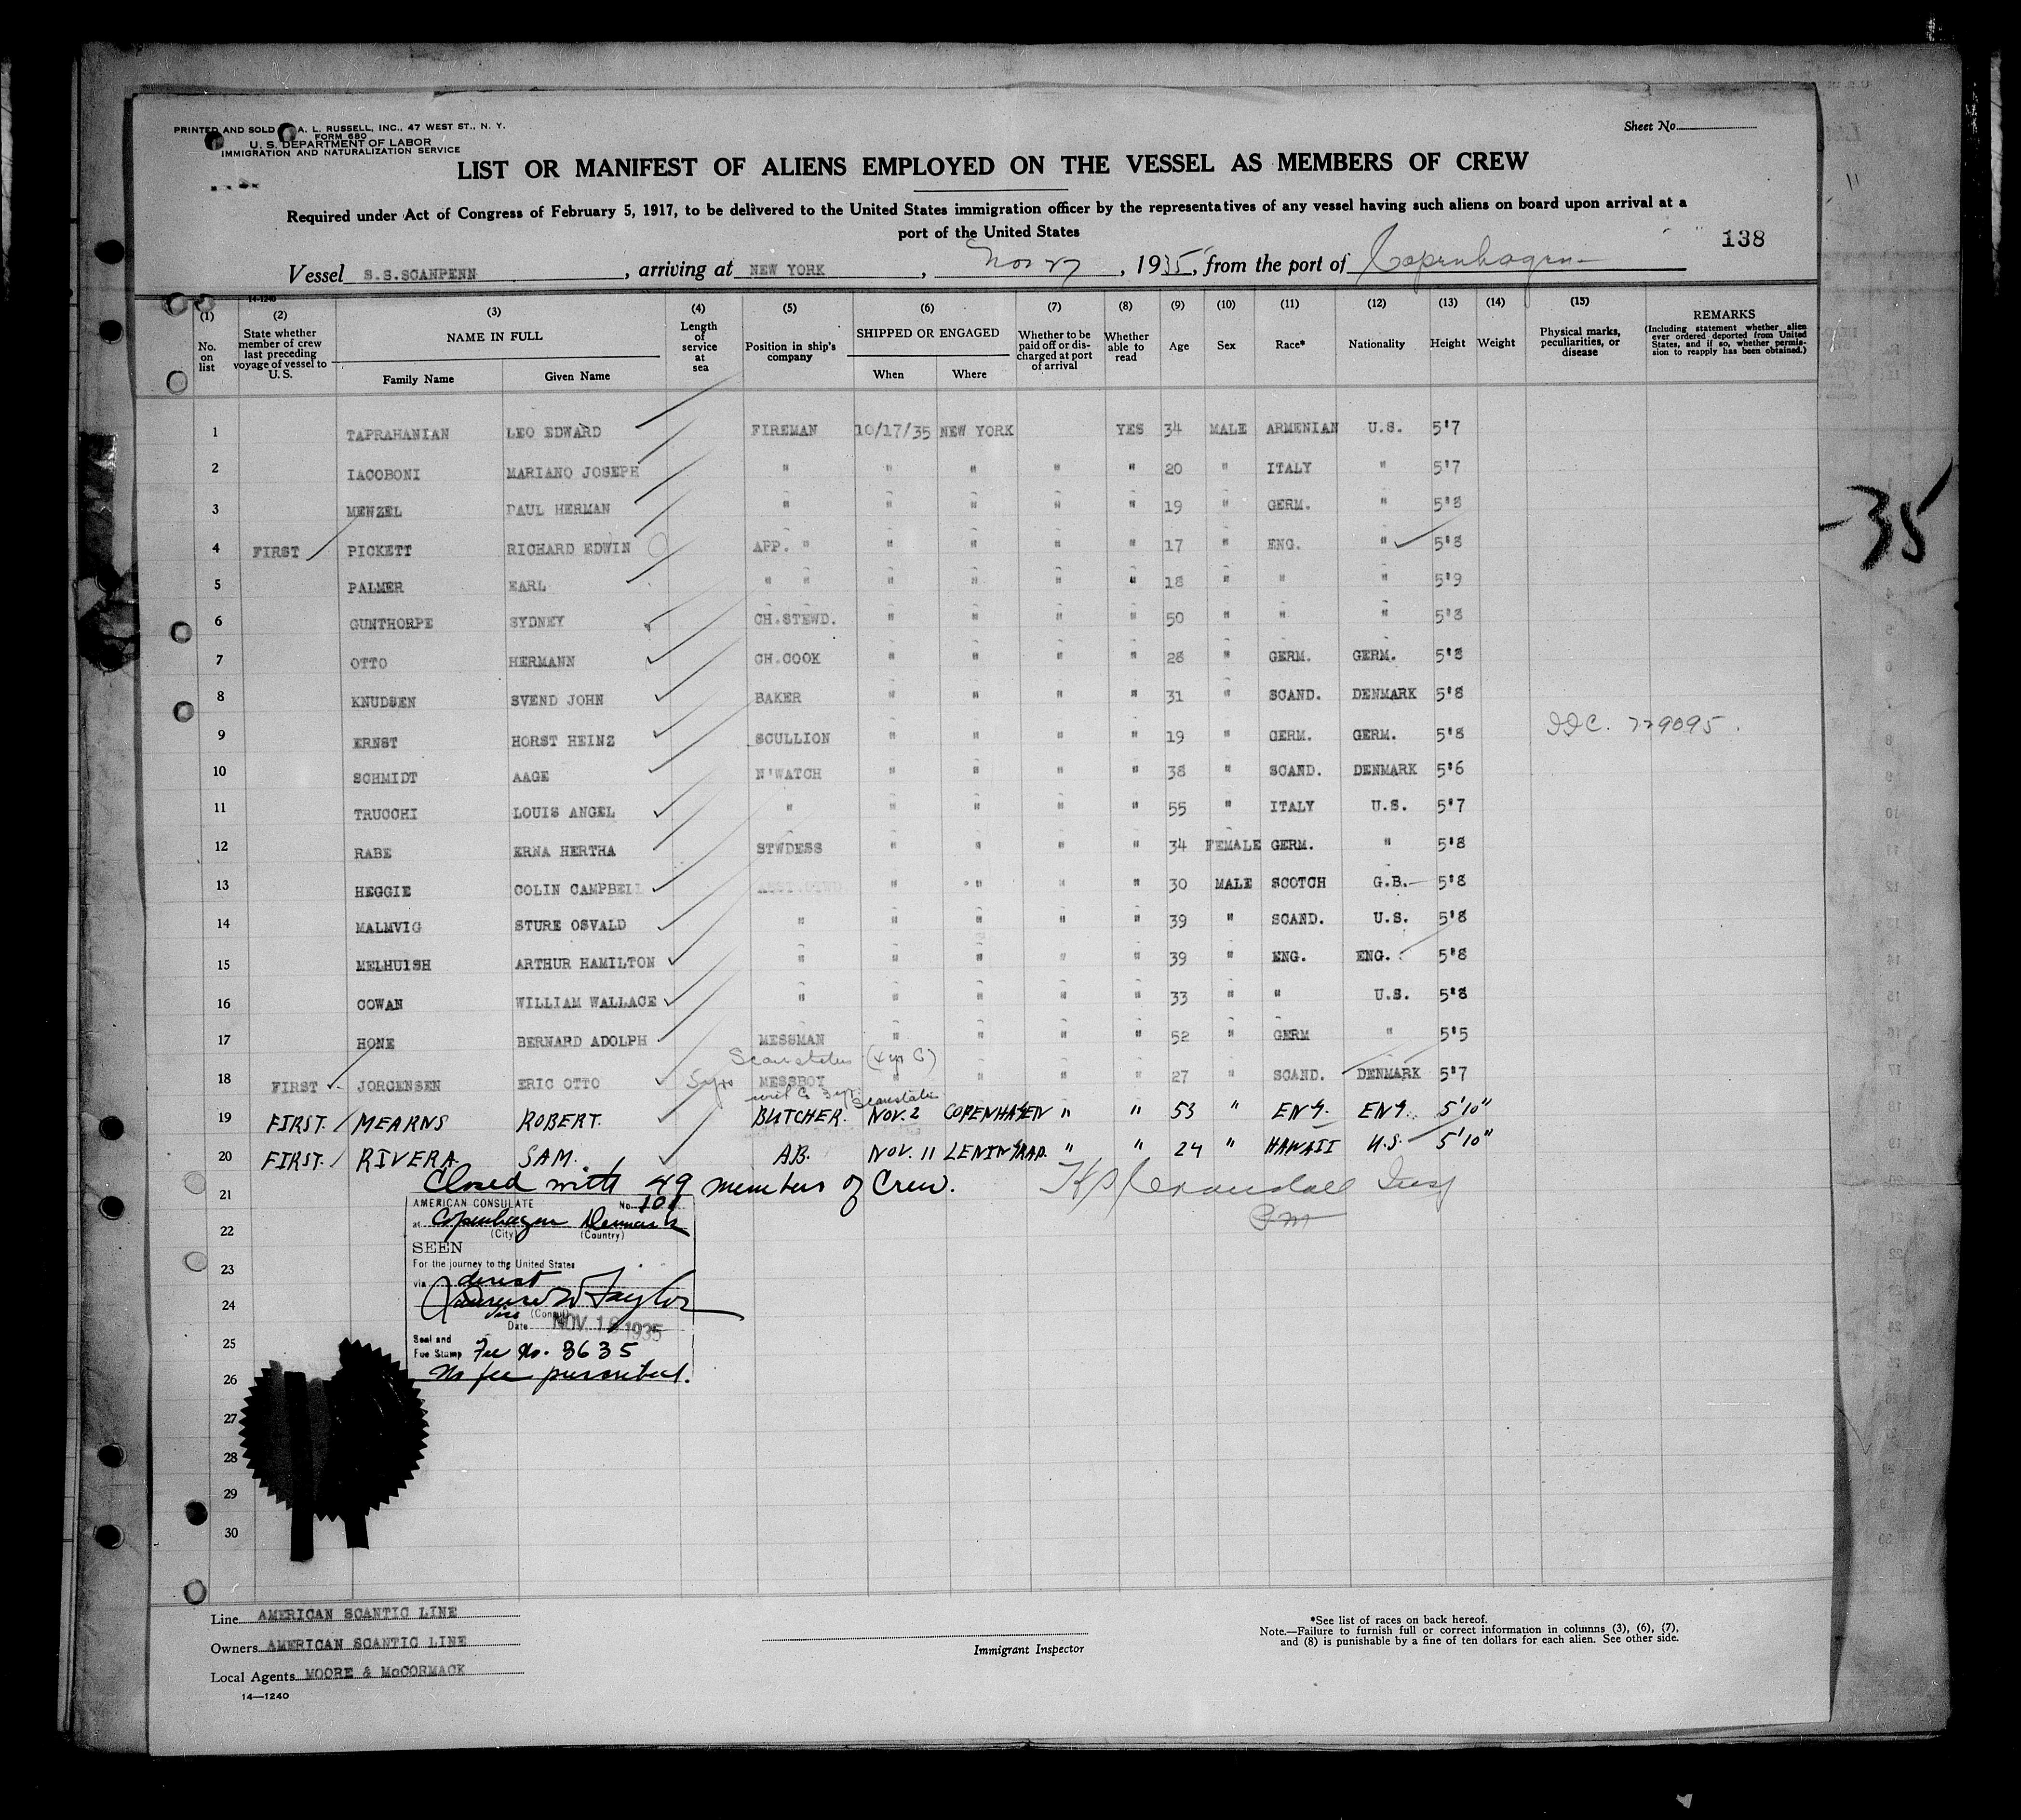 PRINTED AND SOLD A. L. RUSSELL, INC., 47 WEST ST., N. Y.
FORM 680
U. S. DEPARTMENT OF LABOR
IMMIGRATION AND NATURALIZATION SERVICE
Sheet No.
LIST OR MANIFEST OF ALIENS EMPLOYED ON THE VESSEL AS MEMBERS OF CREW
Required under Act of Congress of February 5, 1917, to be delivered to the United States immigration officer by the representatives of any vessel having such aliens on board upon arrival at a
port of the United States
138
Vessel S.S.SCANPENN, arriving at NEW YORK, Nov 27, 1935, from the port of Copenhagen
14-1240
(1) (2) (3) (4) (5) (6) (7) (8) (9) (10) (11) (12) (13) (14) (15) REMARKS
No. on list State whether member of crew last preceding voyage of vessel to U.S. NAME IN FULL Length of service at sea Position in ship's company SHIPPED OR ENGAGED Whether to be paid off or discharged at port of arrival Whether able to read Age Sex Race* Nationality Height Weight Physical marks, peculiarities, or disease (Including statement whether alien ever ordered deported from United States, and if so, whether permission to reapply has been obtained.)
Family Name Given Name When Where
1 TAPRAHANIAN LEO EDWARD FIREMAN 10/17/35 NEW YORK YES 34 MALE ARMENIAN U.S. 5'7
2 IACOBONI MARIANO JOSEPH " " " " " 20 " ITALY " 5'7
3 MENZEL PAUL HERMAN " " " " " 19 " GERM. " 5'8
4 FIRST PICKETT RICHARD EDWIN APP. " " " " " 17 " ENG. " 5'8
5 PALMER EARL " " " " " " 18 " " " 5'9
6 GUNTHORPE SYDNEY CH.STEWD. " " " " 50 " " " 5'8
7 OTTO HERMANN CH.COOK " " " " 28 " GERM. GERM. 5'8
8 KNUDSEN SVEND JOHN BAKER " " " " 31 " SCAND. DENMARK 5'8
9 ERNST HORST HEINZ SCULLION " " " " 19 " GERM. GERM. 5'8 779095.
10 SCHMIDT AAGE N'WATCH " " " " 38 " SCAND. DENMARK 5'6
11 TRUCCHI LOUIS ANGEL " " " " " 55 " ITALY U.S. 5'7
12 RABE ERNA HERTHA STWDESS " " " " 34 FEMALE GERM. " 5'8
13 HEGGIE COLIN CAMPBELL " " " " 30 MALE SCOTCH G.B. 5'8
14 MALMVIG STURE OSVALD " " " " " 39 " SCAND. U.S. 5'8
15 MELHUISH ARTHUR HAMILTON " " " " " 39 " ENG. ENG. 5'8
16 COWAN WILLIAM WALLACE " " " " " 33 " " U.S. 5'8
17 HONE BERNARD ADOLPH MESSMAN " " " " 52 " GERM " 5'5
Scanstates (4 yr G)
18 FIRST JORGENSEN ERIC OTTO 5 yrs MESSBOY " " " " 27 " SCAND. DENMARK 5'7
Scanstates
19 FIRST. MEARNS ROBERT. BUTCHER. NOV. 2 COPENHAGEN " " 53 " ENG. ENG. 5'10"
20 FIRST. RIVERA SAM. A.B. NOV. 11 LENINGRAD. " " 24 " HAWAII U.S. 5'10"
21 Closed with 49 members of Crew.
22
23
24
25
26
27
28
29
30
AMERICAN CONSULATE No. 101
at Copenhagen Denmark
(City) (Country)
SEEN
For the journey to the United States
via direct
Taylor
Vice (Consul)
Date NOV. 16 1935
Seal and
Fee Stamp Fee No. 3635
No fee prescribed.
-35
Line AMERICAN SCANTIC LINE
Owners AMERICAN SCANTIC LINE
Local Agents MOORE & McCORMACK
14—1240
Immigrant Inspector
*See list of races on back hereof.
Note.—Failure to furnish full or correct information in columns (3), (6), (7),
and (8) is punishable by a fine of ten dollars for each alien. See other side.